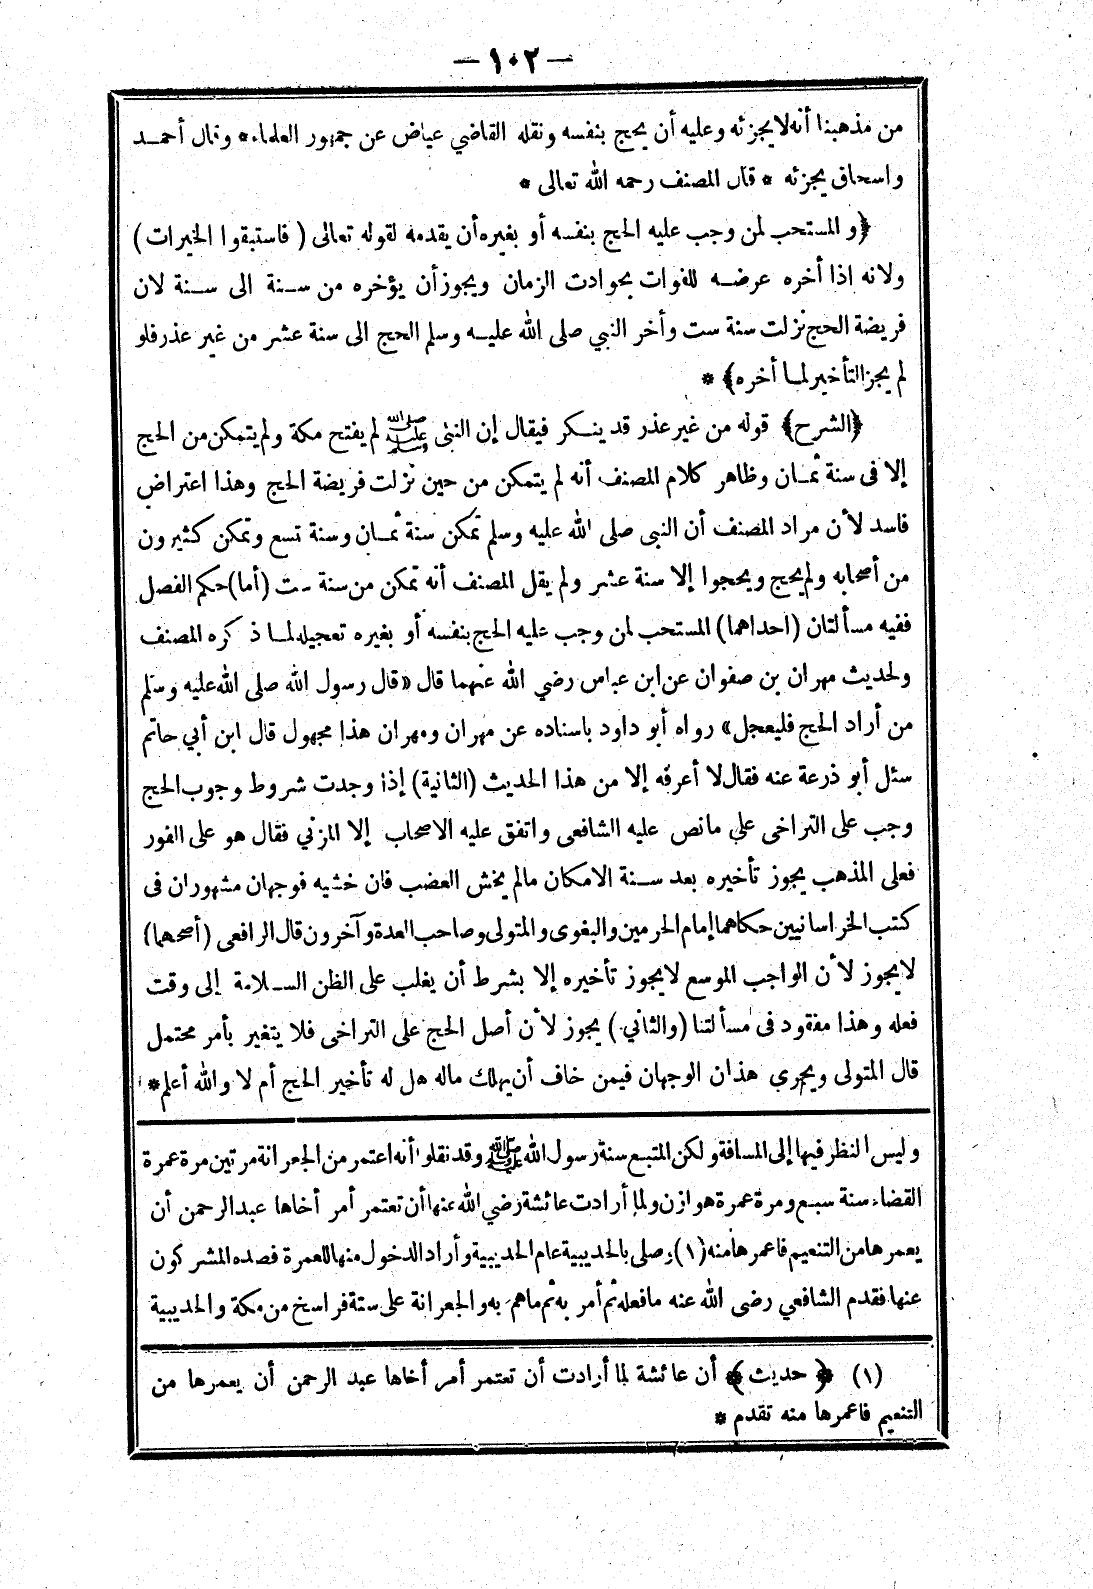 — ١٠٢ —
من مذهبنا أنه لا يجزئه وعليه أن يحج بنفسه ونقله القاضي عياض عن جمهور العلماء * وقال أحمــد
واسحاق يجزئه * قال المصنف رحمه الله تعالى *
﴿والمستحب لمن وجب عليه الحج بنفسه أو بغيره أن يقدمه لقوله تعالى ( فاستبقوا الخيرات )
ولانه اذا أخره عرضــه للفوات بحوادث الزمان ويجوز أن يؤخره من ســنة الى ســنة لان
فريضة الحج نزلت سنة ست وأخر النبي صلى الله عليــه وسلم الحج الى سنة عشر من غير عذر فلو
لم يجز التأخير لمــا أخره﴾ *
﴿الشرح﴾ قوله من غير عذر قد ينــكر فيقال إن النبى ﷺ لم يفتح مكة ولم يتمكن من الحج
إلا فى سنة ثمــان وظاهر كلام المصنف أنه لم يتمكن من حين نزلت فريضة الحج وهذا اعتراض
فاسد لأن مراد المصنف أن النبى صلى الله عليه وسلم تمكن سنة ثمــان وسنة تسع وتمكن كثيرون
من أصحابه ولم يحج ويحجوا إلا سنة عشر ولم يقل المصنف أنه تمكن من سنة ست (أما) حكم الفصل
ففيه مسألتان (احداهما) المستحب لمن وجب عليه الحج بنفسه أو بغيره تعجيله لمــا ذكره المصنف
ولحديث مهران بن صفوان عن ابن عباس رضي الله عنهما قال «قال رسول الله صلى الله عليه وسلم
من أراد الحج فليعجل» رواه أبو داود باسناده عن مهران ومهران هذا مجهول قال ابن أبي حاتم
سئل أبو ذرعة عنه فقال لا أعرفه إلا من هذا الحديث (الثانية) إذا وجدت شروط وجوب الحج
وجب على التراخى على ما نص عليه الشافعى واتفق عليه الاصحاب إلا المزني فقال هو على الفور
فعلى المذهب يجوز تأخيره بعد ســنة الامكان مالم يخش العضب فان خشيه فوجهان مشهوران فى
كتب الخراسانيين حكاهما إمام الحرمين والبغوى والمتولى وصاحب العدة وآخرون قال الرافعى (أصحهما)
لا يجوز لأن الواجب الموسع لا يجوز تأخيره إلا بشرط أن يغلب على الظن الســلامة إلى وقت
فعله وهذا مفقود فى مسألتنا (والثاني) يجوز لأن أصل الحج على التراخى فلا يتغير بأمر محتمل
قال المتولى ويجري هذان الوجهان فيمن خاف أن يهلك ماله هل له تأخير الحج أم لا والله أعلم *
وليس النظر فيها إلى المسافة ولكن المتبع سنة رسول الله ﷺ وقد نقلوا أنه اعتمر من الجعرانة مرتين مرة عمرة
القضاء سنة سبع ومرة عمرة هوازن ولما أرادت عائشة رضي الله عنها أن تعتمر أمر أخاها عبد الرحمن أن
يعمرها من التنعيم فاعمرها منه (١) وصلى بالحديبية عام الحديبية وأراد الدخول منها للعمرة فصده المشركون
عنها فقدم الشافعي رضى الله عنه ما فعله ثم أمر به ثم ما هم به والجعرانة على ستة فراسخ من مكة والحديبية
(١) ﴿ حديث ﴾ أن عائشة لما أرادت أن تعتمر أمر أخاها عبد الرحمن أن يعمرها من
التنعيم فاعمرها منه تقدم *